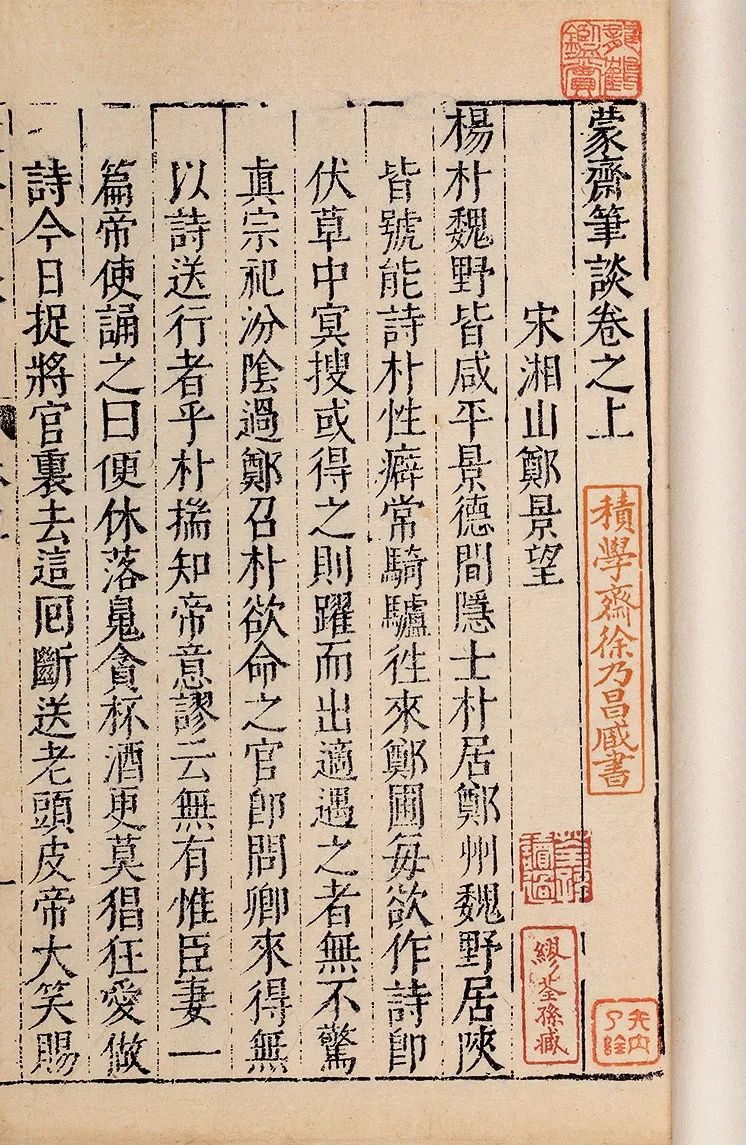 蒙齋筆談卷之上
宋湘山鄭景望
楊朴魏野皆咸平景德間隱士朴居鄭州魏野居陝
皆號能詩朴性癖常騎驢徃來鄭圃每欲作詩卽
伏草中冥搜或得之則躍而出適遇之者無不驚
眞宗祀汾陰過鄭召朴欲命之官卽問卿來得無
以詩送行者乎朴揣知帝意謬云無有惟臣妻一
篇帝使誦之曰便休落魄貪杯酒更莫猖狂愛做
詩今日捉將官裏去這囘斷送老頭皮帝大笑賜
積學齋徐乃昌臧書
繆荃孫臧